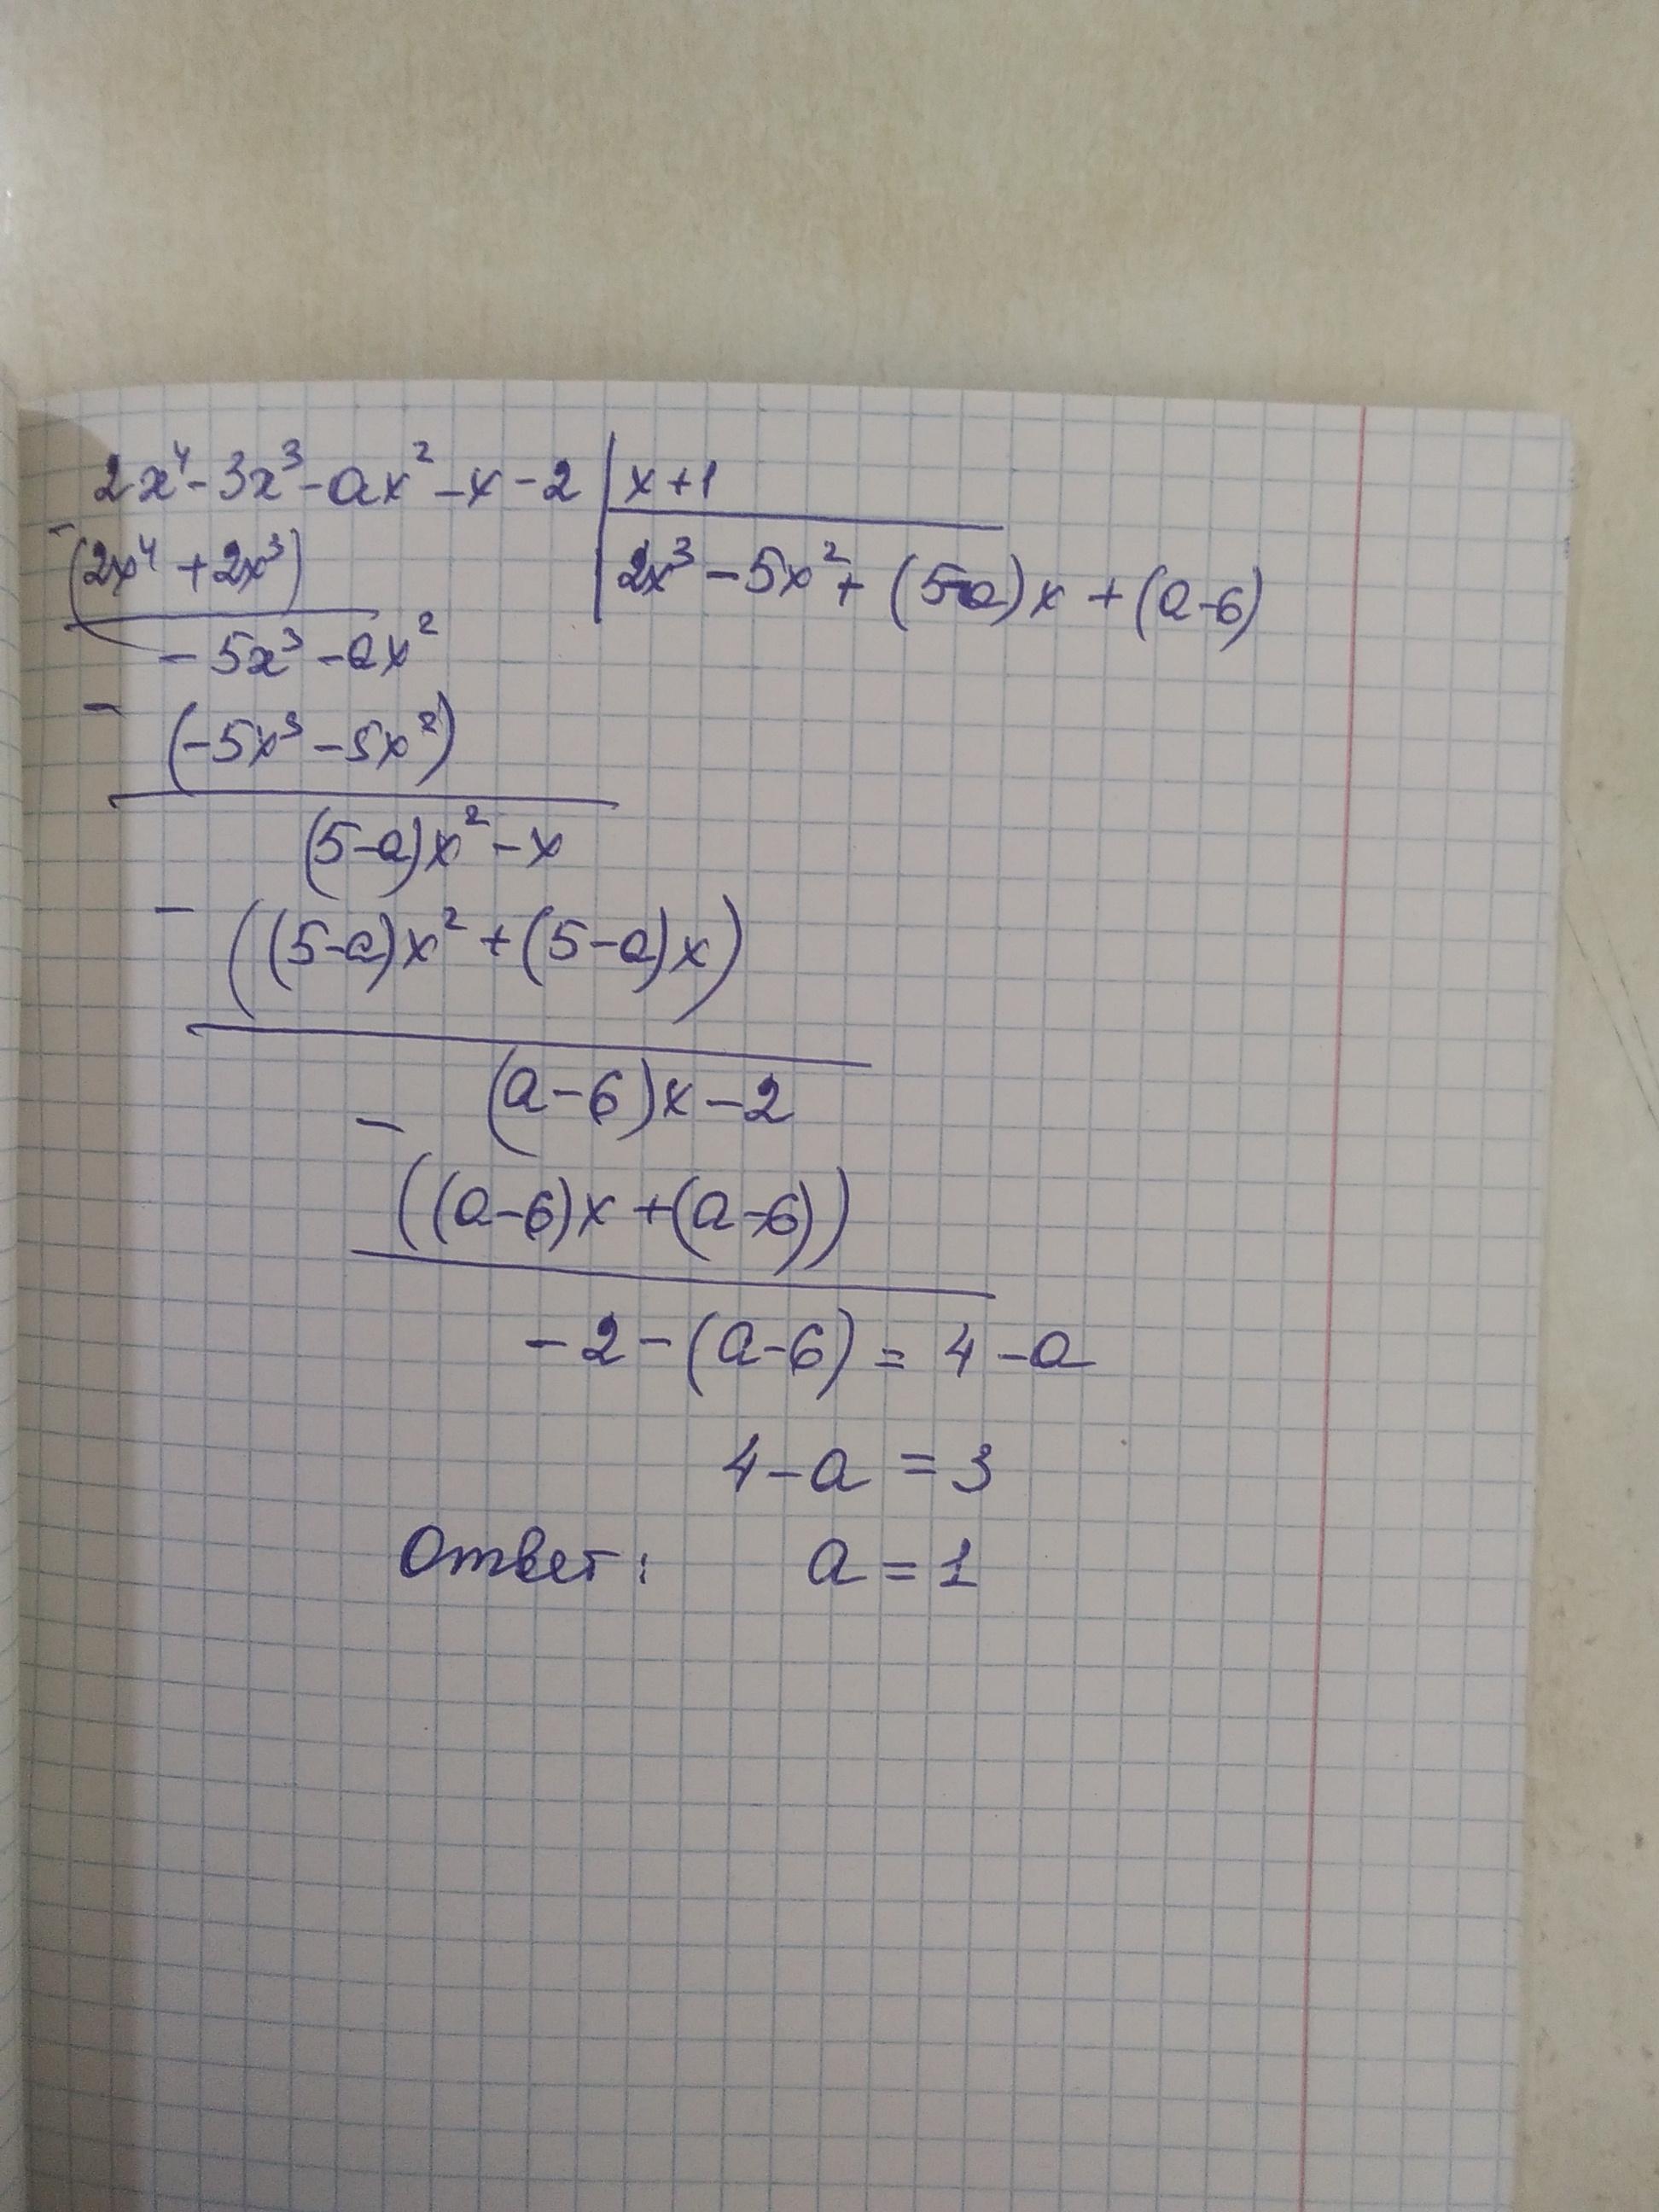 2x⁴-3x³-ax²-x-2 | x+1
-(2x⁴+2x³) | 2x³-5x²+(5-a)x+(a-6)
-5x³-ax²
-(-5x³-5x²)
(5-a)x²-x
-((5-a)x²+(5-a)x)
(a-6)x-2
-((a-6)x+(a-6))
-2-(a-6)=4-a
4-a=3
Ответ: a=1